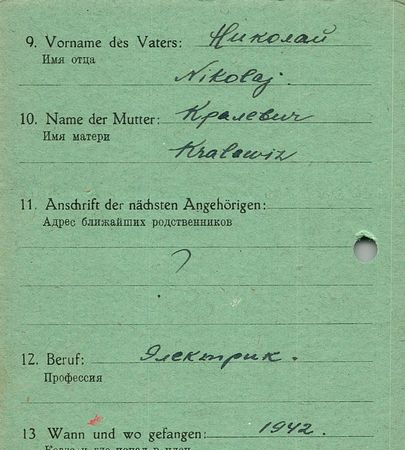 9. Vorname des Vaters: Николай
Имя отца
Nikolaj.
10. Name der Mutter: Кралевич
Имя матери
Kralewiz
11. Anschrift der nächsten Angehörigen:
Адрес ближайших родственников
?
12. Beruf: Электрик.
Профессия
13 Wann und wo gefangen: 1942.